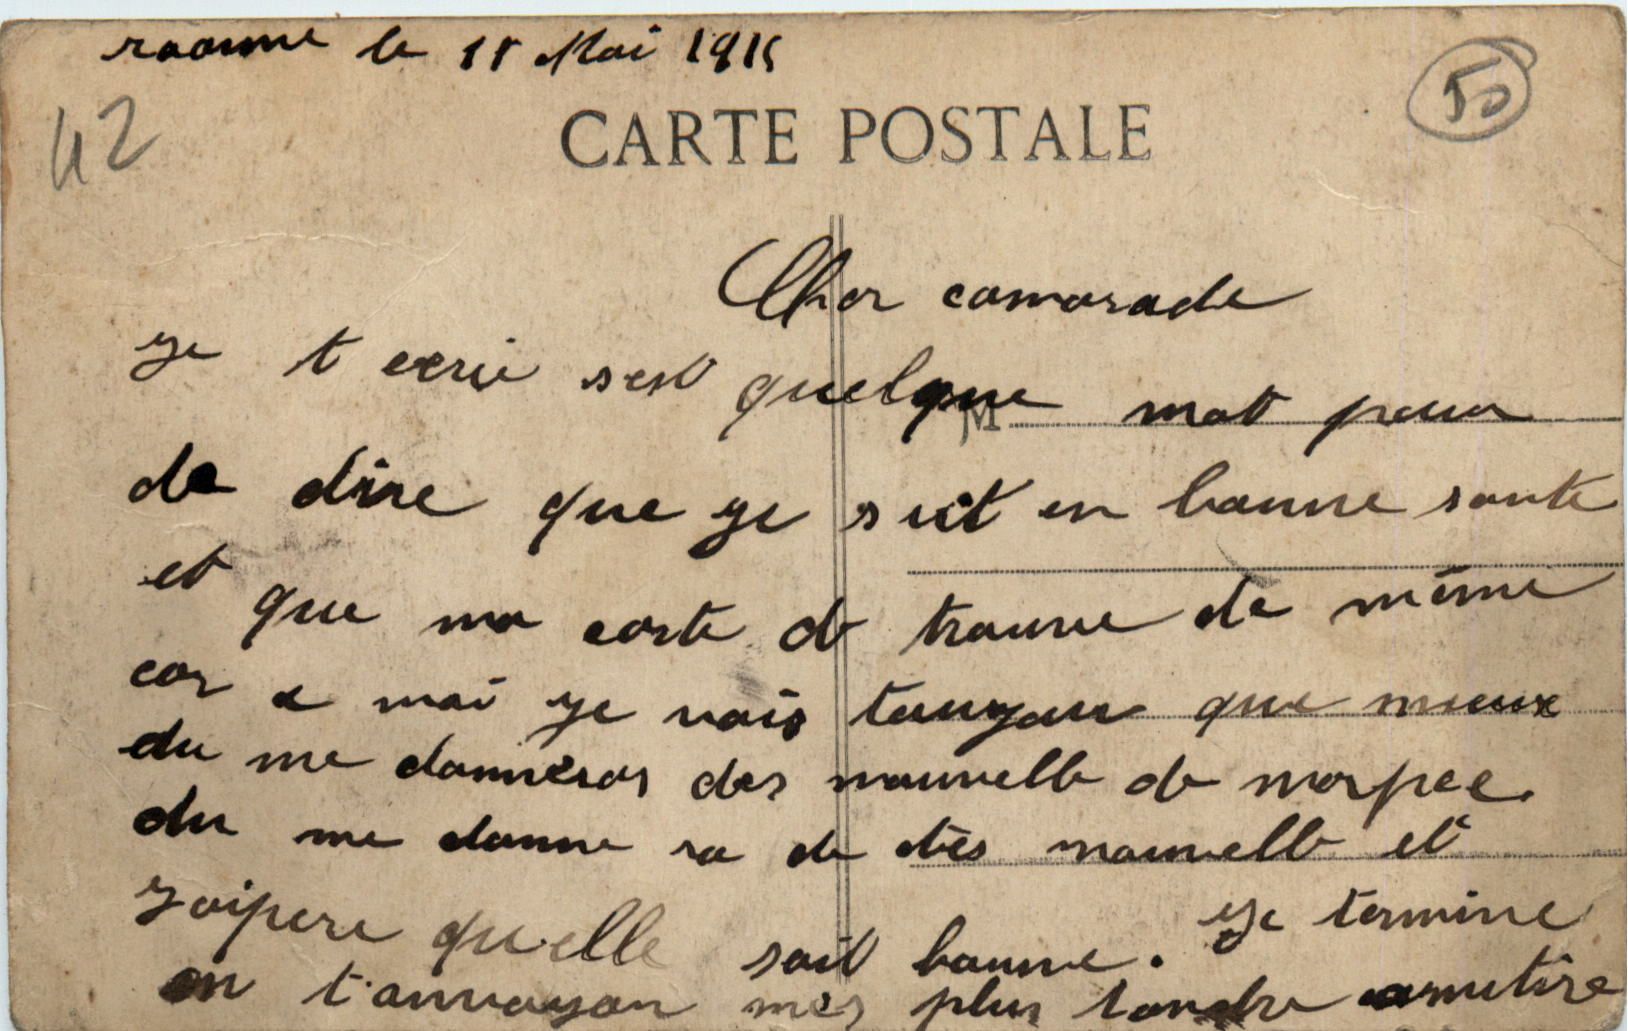 roanne le 11 Mai 1915
42
50
CARTE POSTALE
Cher camarade
je t ecrie sest quelque mot pour
M
de dire que je suit en bonne sante
et que ma carte de trouve de même
car a moi je vais toujour que mieux
du me donneras des nouvelle de
du me donne ra de des nouvelle et
j'aipere qu'elle soit bonne. je termine
en t'anvoyan mes plus tandre amitire